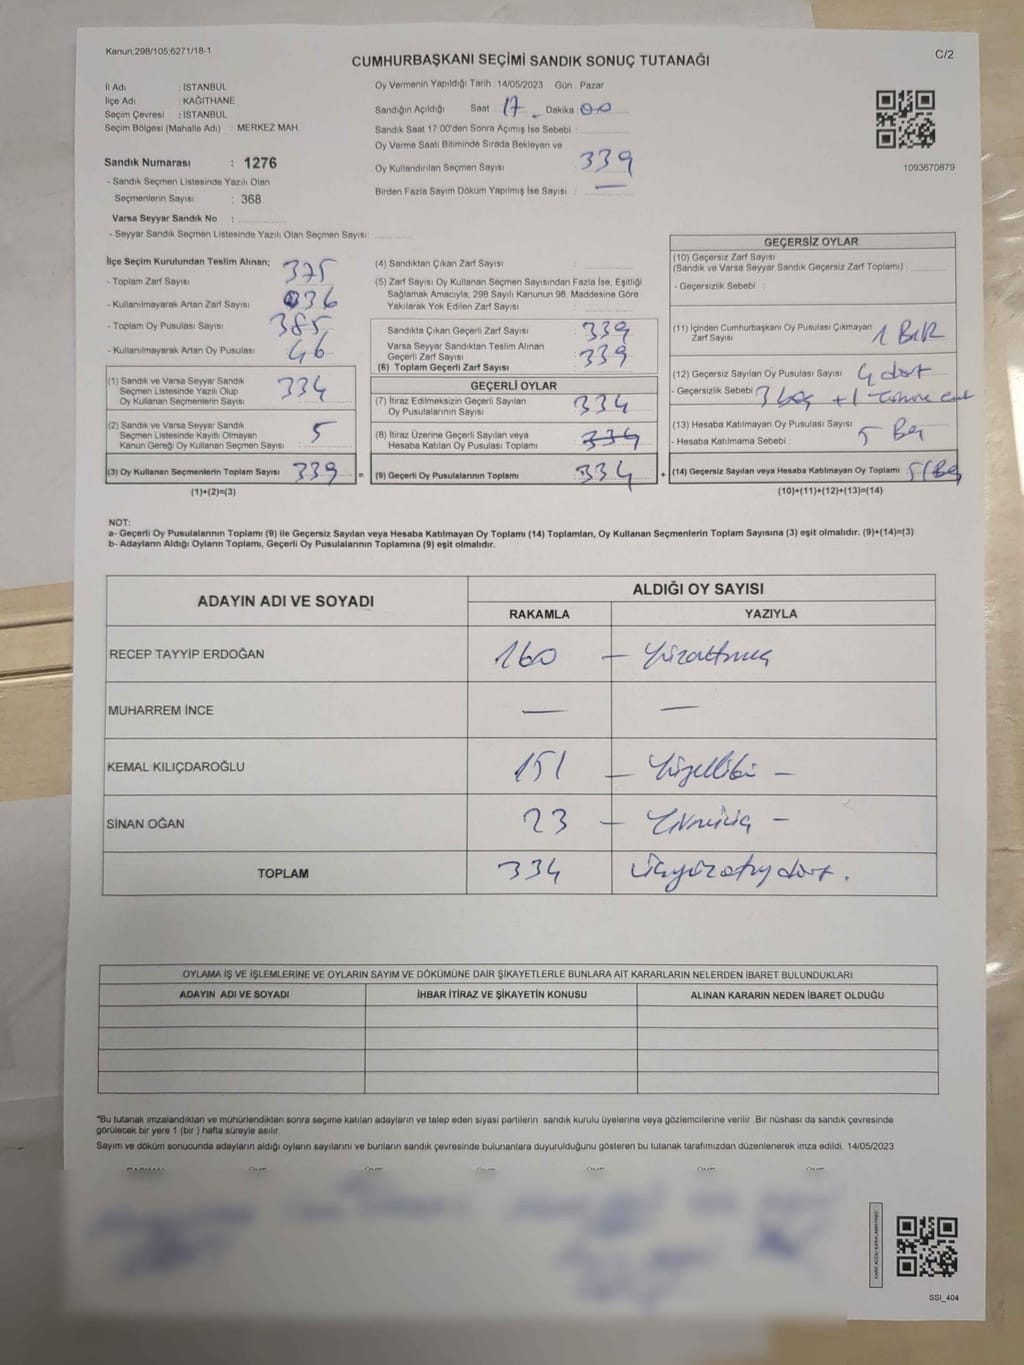 Kanun;298/105,6271/18-1
C/2
CUMHURBAŞKANI SEÇİMİ SANDIK SONUÇ TUTANAĞI
İl Adı : İSTANBUL
İlçe Adı : KAĞITHANE
Seçim Çevresi : İSTANBUL
Seçim Bölgesi (Mahalle Adı) : MERKEZ MAH.
Sandık Numarası : 1276
- Sandık Seçmen Listesinde Yazılı Olan
Seçmenlerin Sayısı : 368
Varsa Seyyar Sandık No :
- Seyyar Sandık Seçmen Listesinde Yazılı Olan Seçmen Sayısı:
Oy Vermenin Yapıldığı Tarih :14/05/2023 Gün : Pazar
Sandığın Açıldığı Saat : 17 Dakika : 00
Sandık Saat 17:00'den Sonra Açımış İse Sebebi :
Oy Verme Saati Bitiminde Sırada Bekleyen ve
Oy Kullandırılan Seçmen Sayısı : 339
Birden Fazla Sayım Döküm Yapılmış İse Sayısı : —
1093670879
İlçe Seçim Kurulundan Teslim Alınan;
- Toplam Zarf Sayısı : 375
- Kullanılmayarak Artan Zarf Sayısı : 036
- Toplam Oy Pusulası Sayısı : 385
- Kullanılmayarak Artan Oy Pusulası : 46
(1) Sandık ve Varsa Seyyar Sandık
Seçmen Listesinde Yazılı Olup
Oy Kullanan Seçmenlerin Sayısı : 334
(2) Sandık ve Varsa Seyyar Sandık
Seçmen Listesinde Kayıtlı Olmayan
Kanun Gereği Oy Kullanan Seçmen Sayısı : 5
(3) Oy Kullanan Seçmenlerin Toplam Sayısı : 339
(1)+(2)=(3)
(4) Sandıktan Çıkan Zarf Sayısı :
(5) Zarf Sayısı Oy Kullanan Seçmen Sayısından Fazla İse, Eşitliği
Sağlamak Amacıyla, 298 Sayılı Kanunun 98. Maddesine Göre
Yakılarak Yok Edilen Zarf Sayısı :
Sandıkta Çıkan Geçerli Zarf Sayısı : 339
Varsa Seyyar Sandıktan Teslim Alınan
Geçerli Zarf Sayısı :
(6) Toplam Geçerli Zarf Sayısı : 339
GEÇERLİ OYLAR
(7) İtiraz Edilmeksizin Geçerli Sayılan
Oy Pusulalarının Sayısı : 334
(8) İtiraz Üzerine Geçerli Sayılan veya
Hesaba Katılan Oy Pusulası Toplamı : 334
(9) Geçerli Oy Pusulalarının Toplamı : 334
GEÇERSİZ OYLAR
(10) Geçersiz Zarf Sayısı
(Sandık ve Varsa Seyyar Sandık Geçersiz Zarf Toplamı) :
- Geçersizlik Sebebi :
(11) İçinden Cumhurbaşkanı Oy Pusulası Çıkmayan
Zarf Sayısı : 1 BİR
(12) Geçersiz Sayılan Oy Pusulası Sayısı : 4 dört
- Geçersizlik Sebebi : 3 boş + 1
(13) Hesaba Katılmayan Oy Pusulası Sayısı :
- Hesaba Katılmama Sebebi : 5 Beş
(14) Geçersiz Sayılan veya Hesaba Katılmayan Oy Toplamı : 5 (Beş
(10)+(11)+(12)+(13)=(14)
NOT:
a- Geçerli Oy Pusulalarının Toplamı (9) ile Geçersiz Sayılan veya Hesaba Katılmayan Oy Toplamı (14) Toplamları, Oy Kullanan Seçmenlerin Toplam Sayısına (3) eşit olmalıdır. (9)+(14)=(3)
b- Adayların Aldığı Oyların Toplamı, Geçerli Oy Pusulalarının Toplamına (9) eşit olmalıdır.
ADAYIN ADI VE SOYADI
ALDIĞI OY SAYISI
RAKAMLA YAZIYLA
RECEP TAYYİP ERDOĞAN 160 — Yüzaltmış
MUHARREM İNCE — —
KEMAL KILIÇDAROĞLU 151 — Yüzellibir —
SİNAN OĞAN 23 — Yirmiüç —
TOPLAM 334 Üçyüzotuzdört.
OYLAMA İŞ VE İŞLEMLERİNE VE OYLARIN SAYIM VE DÖKÜMÜNE DAİR ŞİKAYETLERLE BUNLARA AİT KARARLARIN NELERDEN İBARET BULUNDUKLARI
ADAYIN ADI VE SOYADI İHBAR İTİRAZ VE ŞİKAYETİN KONUSU ALINAN KARARIN NEDEN İBARET OLDUĞU
*Bu tutanak imzalandıktan ve mühürlendikten sonra seçime katılan adayların ve talep eden siyasi partilerin sandık kurulu üyelerine veya gözlemcilerine verilir. Bir nüshası da sandık çevresinde
görülecek bir yere 1 (bir ) hafta süreyle asılır.
Sayım ve döküm sonucunda adayların aldığı oyların sayılarını ve bunların sandık çevresinde bulunanlara duyurulduğunu gösteren bu tutanak tarafımızdan düzenlenerek imza edildi. 14/05/2023
SSI_404